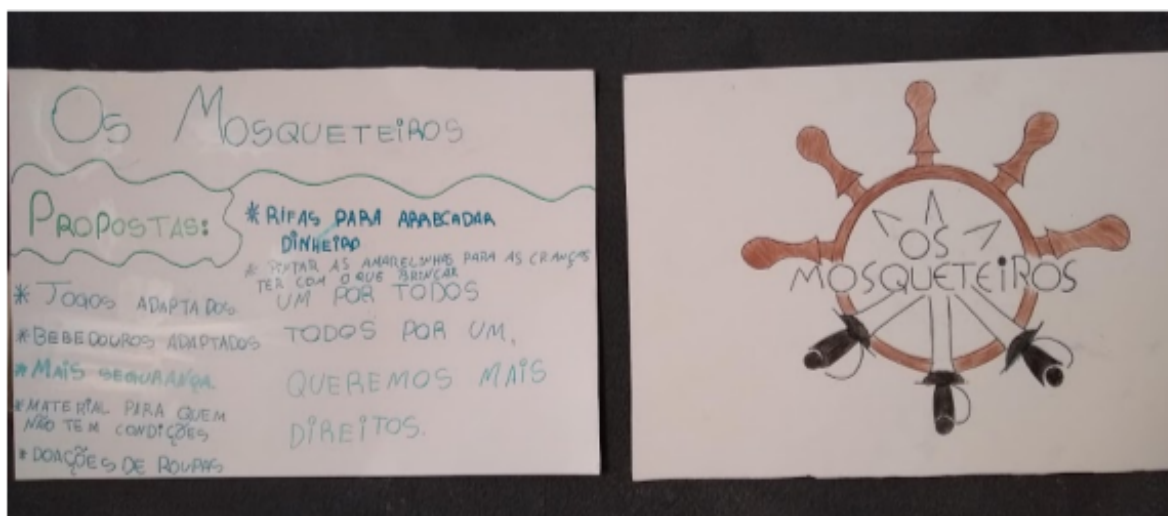 Os MOSQUETEIROS
PROPOSTAS:
* JOGOS ADAPTADOS
* BEBEDOUROS ADAPTADOS
* MAIS SEGURANÇA
* MATERIAL PARA QUEM
NÃO TEM CONDIÇÕES
* DOAÇÕES DE ROUPAS
* RIFAS PARA ARRECADAR
DINHEIRO
* PINTAR AS AMARELINHAS PARA AS CRIANÇAS
TER COM O QUE BRINCAR
UM POR TODOS
TODOS POR UM,
QUEREMOS MAIS
DIREITOS.
OS
MOSQUETEIROS